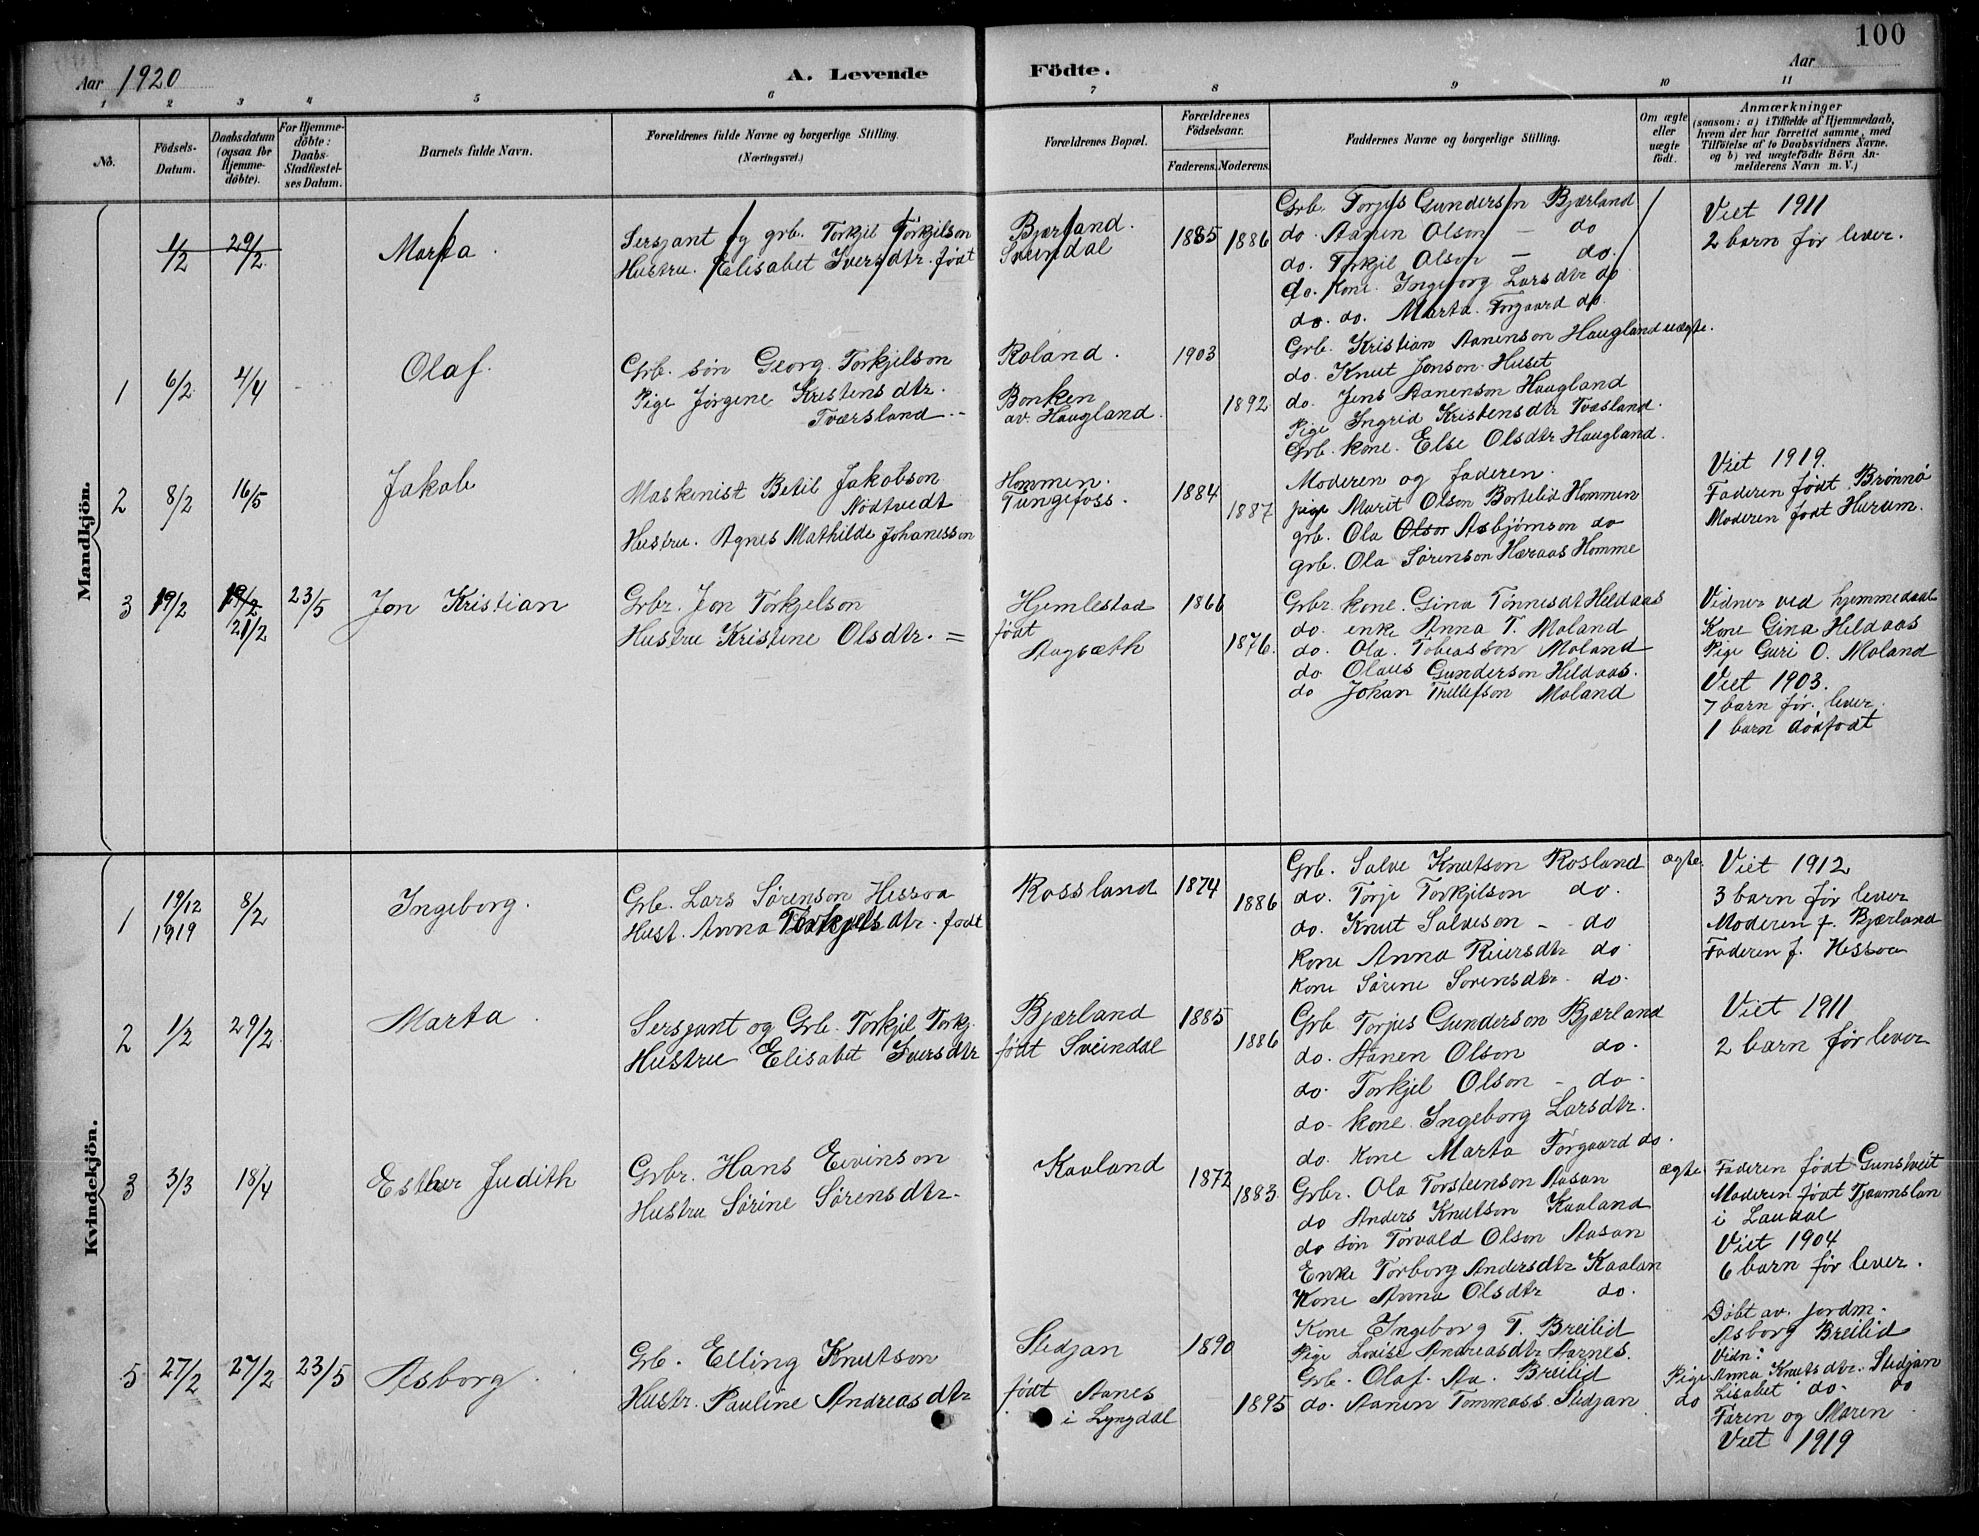 100
Aar 1920
A. Levende Födte.
Aar
1 2 3 4 5 6 7 8 9 10 11
No.
Födsels-Datum.
Daabsdatum (ogsaa for Hjemme-döbte).
For Hjemme-döbte: Daabs-Stadfæstel-ses Datum.
Barnets fulde Navn.
Forældrenes fulde Navne og borgerlige Stilling. (Næringsvei.)
Forældrenes Bopæl.
Forældrenes Födselsaar.
Faderens. Moderens.
Faddernes Navne og borgerlige Stilling.
Om ægte eller uægte födt.
Anmærkninger
(saasom: a) i Tilfælde af Hjemmedaab, hvem der har forrettet samme, med Tilföielse af to Daabsvidners Navne. og b) ved uægtefödte Börn An-melderens Navn m. V.)
Mandkjön.
1/2 29/2 Marta.
Sersjant og grb. Torkjil Torkjilson
Hustru. Elisabet Iversdtr. født
Bjærland.
Sveindal
1885 1886
Grb. Torjus Gunderson Bjærland
do. Aanen Olson — do
do. Torkjil Olson — do.
do. Kone. Ingeborg Larsdtr do
do. do. Marta Torgaard do.
Viet 1911
2 barn før lever.
1 6/2 4/4 Olaf.
Grb. søn Georg Torkjelson
Pige Jørgene Kristensdtr.
Tværsland
Roland.
Bonken
av. Haugland.
1903 1892
Grb. Kristian Aanenson Haugland uægte.
do. Knut Jonson Huset
do. Jens Aanenson Haugland
Pige Ingrid Kristensdtr Tvæsland.
Grb. kone. Else Olsdtr Haugland.
2 8/2 16/5 Jakob
Maskinist Betil Jakobson
Nodtvedt
Hustru. Agnes Mathilde Johanesson
Hommen.
Tungefoss.
1884 1887
Moderen og faderen.
pige Marit Olson Bortelid Hommen
grb. Ola Olson Asbjømson do
grb. Ola Sørenson Hæraas Homme
Viet 1919.
Faderen født Brønnø
Moderen født Hurum.
3 19/2 19/2 21/2 23/5 Jon Kristian
Grbr. Jon Torkjelson
Hustru Kristine Olsdtr. =
Hjemlestad
født
Augsæth
1866 1876.
Grbr. kone. Gina Tønnesdt Heldaas
do. enke Anna T. Moland
do. Ola. Tobiasson Moland
do Olaus Gunderson Heldaas.
do Johan Trellefson Moland
Vidner ved hjemmedaab
Kone Gina Heldaas
Pige Guri O. Moland
Viet 1903.
7 barn før. lever.
1 barn dødfødt
Kvindekjön.
1 19/12 1919 8/2 Ingeborg.
Grb. Lars Sørenson Hessaa
Hust. Anna Torkjelsdtr. født
Rossland
1874 1886
Grb. Salve Knutson Rosland ægte.
do. Torje Torkjilson do.
do. Knut Salveson - do
Kone Anna Reiersdtr do
Kone Sørine Sørensdtr. do.
Viet 1912
3 barn før lever
Moderen f. Bjærland
Faderen f. Hessaa
2 1/2 29/2 Marta.
Sersjant og Grb. Torkjil Torkj.
Hustru Elisabet Iversdtr
Bjærland
født Sveindal
1885 1886
Grb Torjus Gunderson Bjærland
do. Aanen Olson do.
do. Torkjel Olson - do.
do. kone. Ingeborg Larsdtr.
do. Kone Marta Torgaard do.
Viet 1911
2 barn før lever
3 3/3 18/4 Esther Judith
Grbr. Hans Eivinson
Hustru Sørine Sørensdtr.
Kaaland
1872 1883.
Grbr. Ola Torsteinson Aasan ægte
do Anders Knutson Kaaland
do søn Torvald Olson Aasan
Enke Torborg Andersdtr Kaalan
Kone Anna Olsdtr do.
Faderen født Gunstveit
Moderen født Tjaumslan
i Laudal
Viet 1904
6 barn før lever.
5 27/2 27/2 23/5 Asborg
Grb. Elling Knutson
Hustr. Pauline Andreasdtr
Stedjan
født Aanes
i Lyngdal
1890 1895
Kone Ingeborg T. Breilid
Pige Lovise Andreasdtr Aarnes.
Grb. Olaf. Aa. Breilid
do. Aanen Tommass. Stedjan
Døbt av jordm.
Asborg Breilid
Vidn:
Pige Anna Knutsdtr. Stedjan
do Lisabet do. do
Faren og Moren
Viet 1919